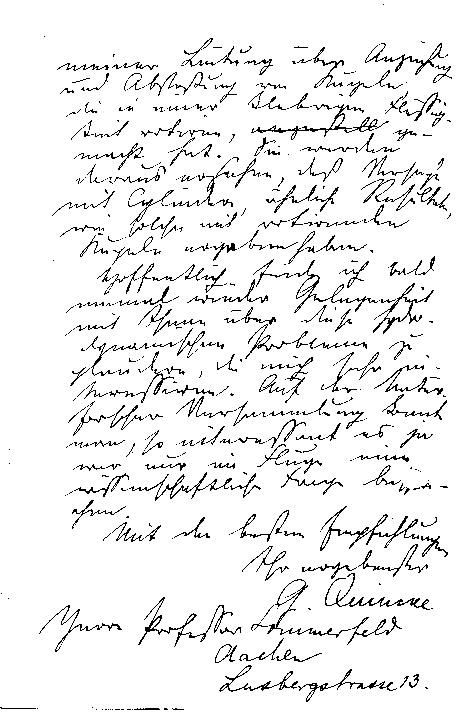 meiner Leitung über Anziehung
und Abstoßung von Kugeln,
die in einer klebrigen Flüssig-
keit rotiren, angestellt ge-
macht hat. Sie werden
daraus ersehen, daß Versuche
mit Cylindern ähnliche Resultate,
wie solche mit rotirenden
Kugeln ergeben haben.
Hoffentlich finde ich bald
einmal wieder Gelegenheit
mit Ihnen über diese hydro-
dynamischen Probleme zu
plaudern, die mich sehr in-
teressiren. Auf der Natur-
forscher Versammlung konnt
man, so interessant es ja
war nur im Fluge eine
wissenschaftliche Frage bespre-
chen.
Mit den besten Empfehlungen
Ihr ergebenster
G. Quincke
Herrn Professor Sommerfeld
Aachen
Lusbergstrasse 13.